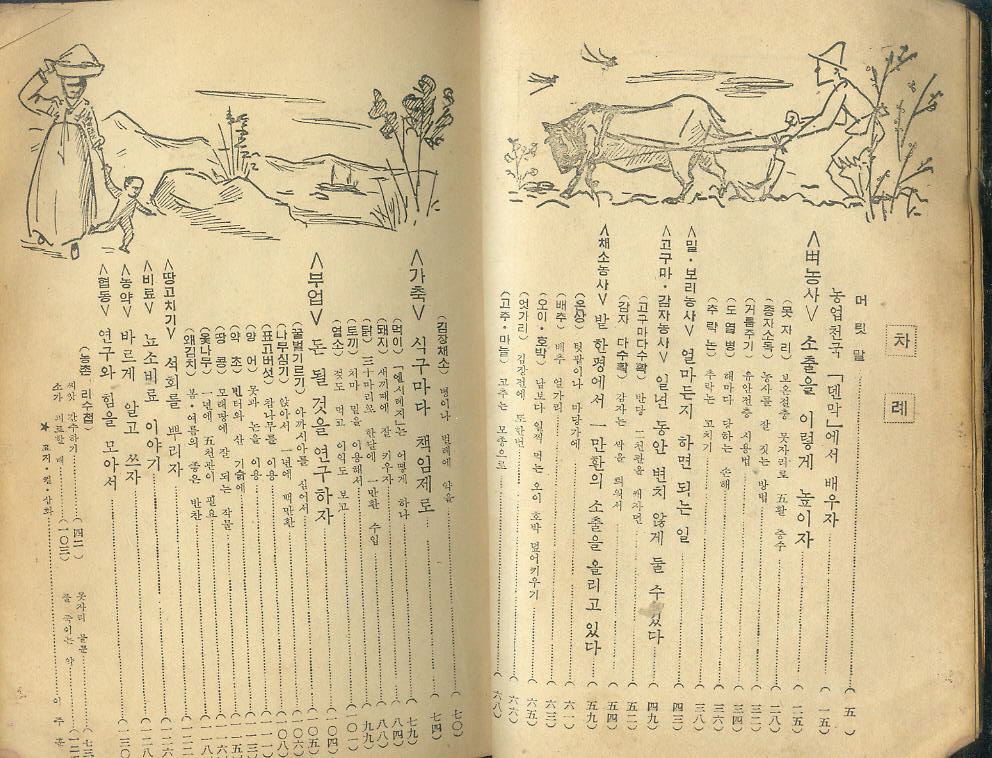 차례
머릿말 (五
농업천국 「덴막」에서 배우자 (一五
<벼농사> 소출을 이렇게 높이자 (二五
(못자리) 보온절충 못자리로 五활 증수 (二八
(종자소독) 농사를 잘 짓는 방법 (三二
(거름주기) 유안전층 시용법 (三四
(도열병) 해마다 당하는 손해 (三六
(추락논) 추락논 고치기 (三八
<밀·보리농사> 얼마든지 하면 되는 일 (四三
<고구마·감자농사> 일년 동안 변치 않게 둘 수 있다 (四九
(고구마다수확) 반당 一천관을 캐자면 (五二)
(감자 다수확) 감자는 싹을 틔워서 (五四)
<채소농사> 밭 한평에서 一만환의 소출을 올리고 있다 (五九)
(온상) 텃밭이나 마당가에 (六一)
(배추) 배추 얼가리 (六三)
(오이·호박) 남보다 일찍 먹는 오이 호박 덮어키우기 (六五)
(얼가리) 김장전에 또한번 (六六)
(고추·마늘) 고추는 모종으로 (六八)
(김장채소) 병이나 벌레에 약을 (七〇)
<가축> 식구마다 책임제로 (七四
(먹이) 「엔시레지」는 어떻게 하나 (七九
(돼지) 새끼때에 잘 키우자 (八四
(닭) 三十마리로 한달에 一만환 수입 (八八
(토끼) 처마 밑을 이용해서 (九九
(염소) 젖도 먹고 이익도 보고 (一〇一
<부업> 돈 될 것을 연구하자 (一〇四
(꿀벌기르기) 아까시아를 심어서 (一〇五
(나무심기) 앉아서 一년에 백만환 (一〇六
(표고버섯) 참나무를 이용
(양어) 못과 논을 이용
(약초) 빈터와 산 기슭에
(땅콩) 모래땅에 잘 되는 작물
(옻나무) 一년에 五천관이 필요
(왜김치) 봄·여름의 좋은 반찬
<땅고치기> 석회를 뿌리자 (一二六
<비료> 뇨소비료 이야기 (一二八
<농약> 바르게 알고 쓰자 (一三〇
<협동> 연구와 힘을 모아서
(농촌수첩)
씨앗 간수하기 (四二)
소가 피로할 때 (一〇三)
못자리 물 (七三
풀 죽이는 약
★ 표지·컽 삽화 이주훈